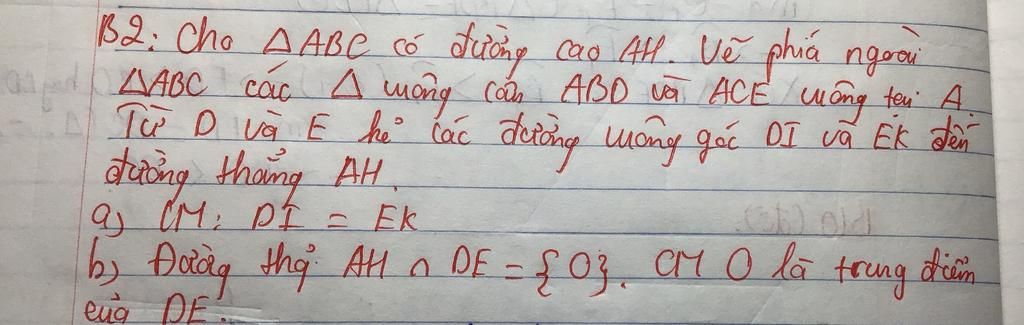 B2: Cho △ABC có đường cao AH. Vẽ phiá ngoài
△ABC các △ vuông cân ABD và ACE vuông tại A.
Từ D và E kẻ các đường vuông góc DI và EK đến
đường thẳng AH.
a) CM: DI = EK
b) Đường thg AH ∩ DE = {O}. CM O là trung điểm
của DE.